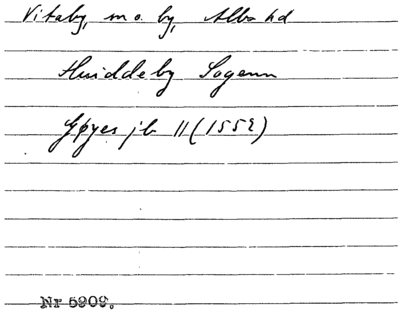 Vitaby, m o. by, Albo hd
Huiddeby Sogenn
Gøyes jb 11 (1552)
Nr 5909.